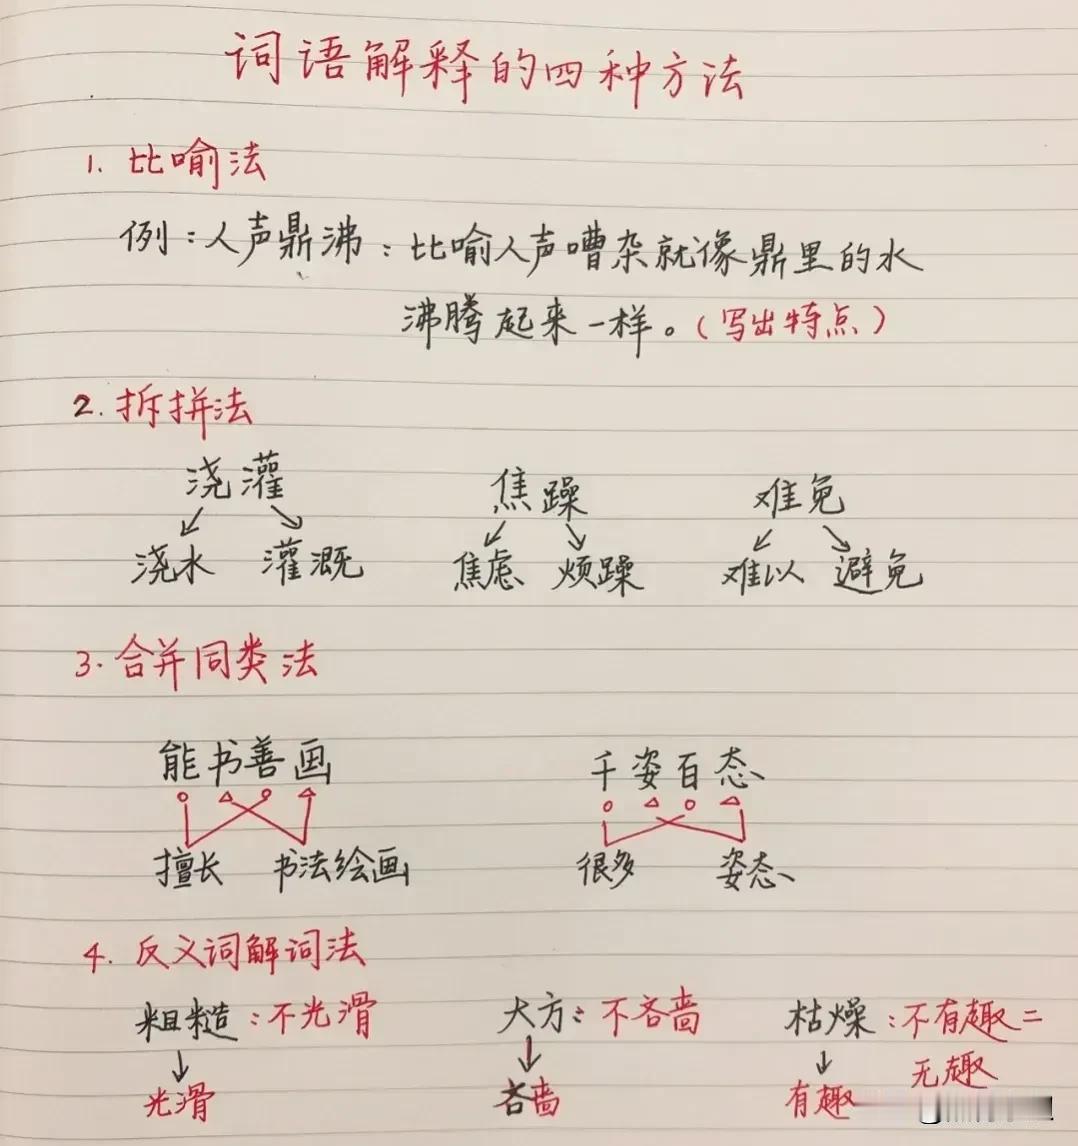 词语解释的四种方法
1. 比喻法
例：人声鼎沸：比喻人声嘈杂就像鼎里的水
沸腾起来一样。（写出特点）
2. 拆拼法
浇灌 焦躁 难免
浇水 灌溉 焦虑 烦躁 难以 避免
3. 合并同类法
能书善画 千姿百态
擅长 书法绘画 很多 姿态
4. 反义词解词法
粗糙：不光滑 大方：不吝啬 枯燥：不有趣=
无趣
光滑 吝啬 有趣